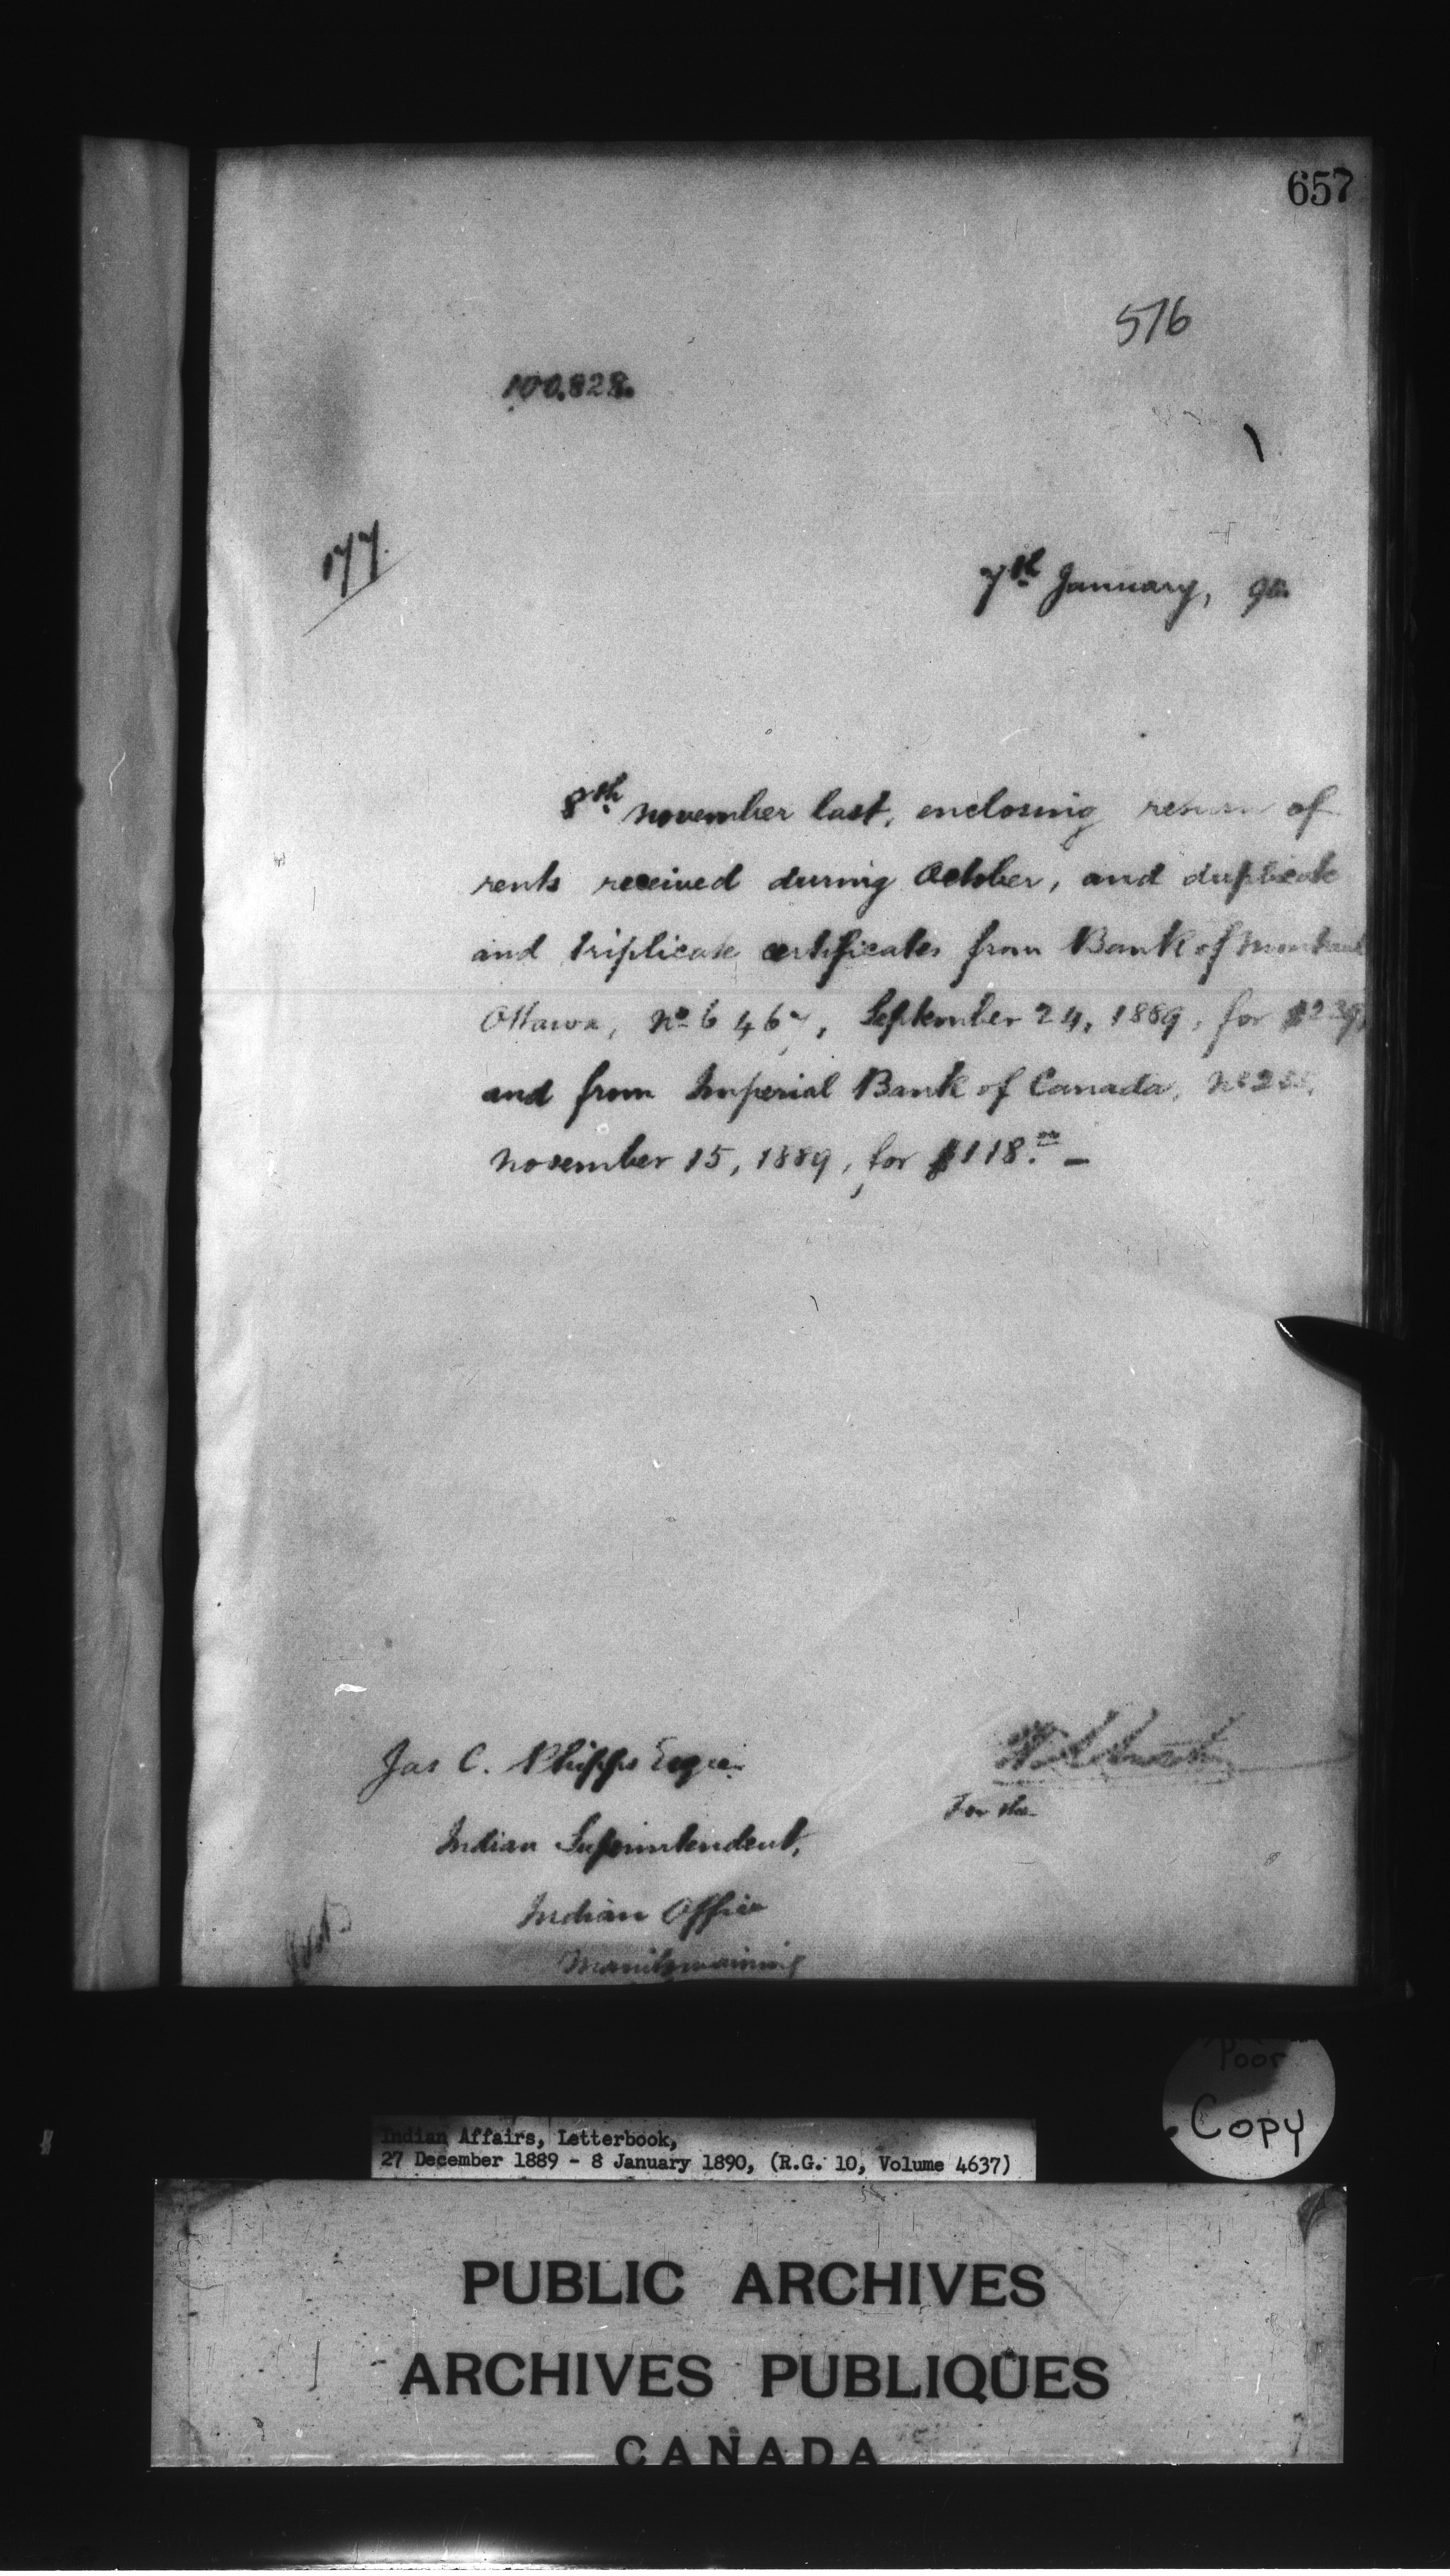 657
576
100.828.
177.
7th January, 90.
8th November last, enclosing return of
rents received during October, and duplicate
and triplicate certificates from Bank of Montreal
Ottawa, No September 24, 1889, for $239,
and from Imperial Bank of Canada, No
November 15, 1889, for $118.00 —
Jas C. Phipps Esqre.
For the
Indian Superintendent,
Indian Office
Manitowaning
Poor
Copy
Indian Affairs, Letterbook,
27 December 1889 - 8 January 1890, (R.G. 10, Volume 4637)
PUBLIC ARCHIVES
ARCHIVES PUBLIQUES
CANADA